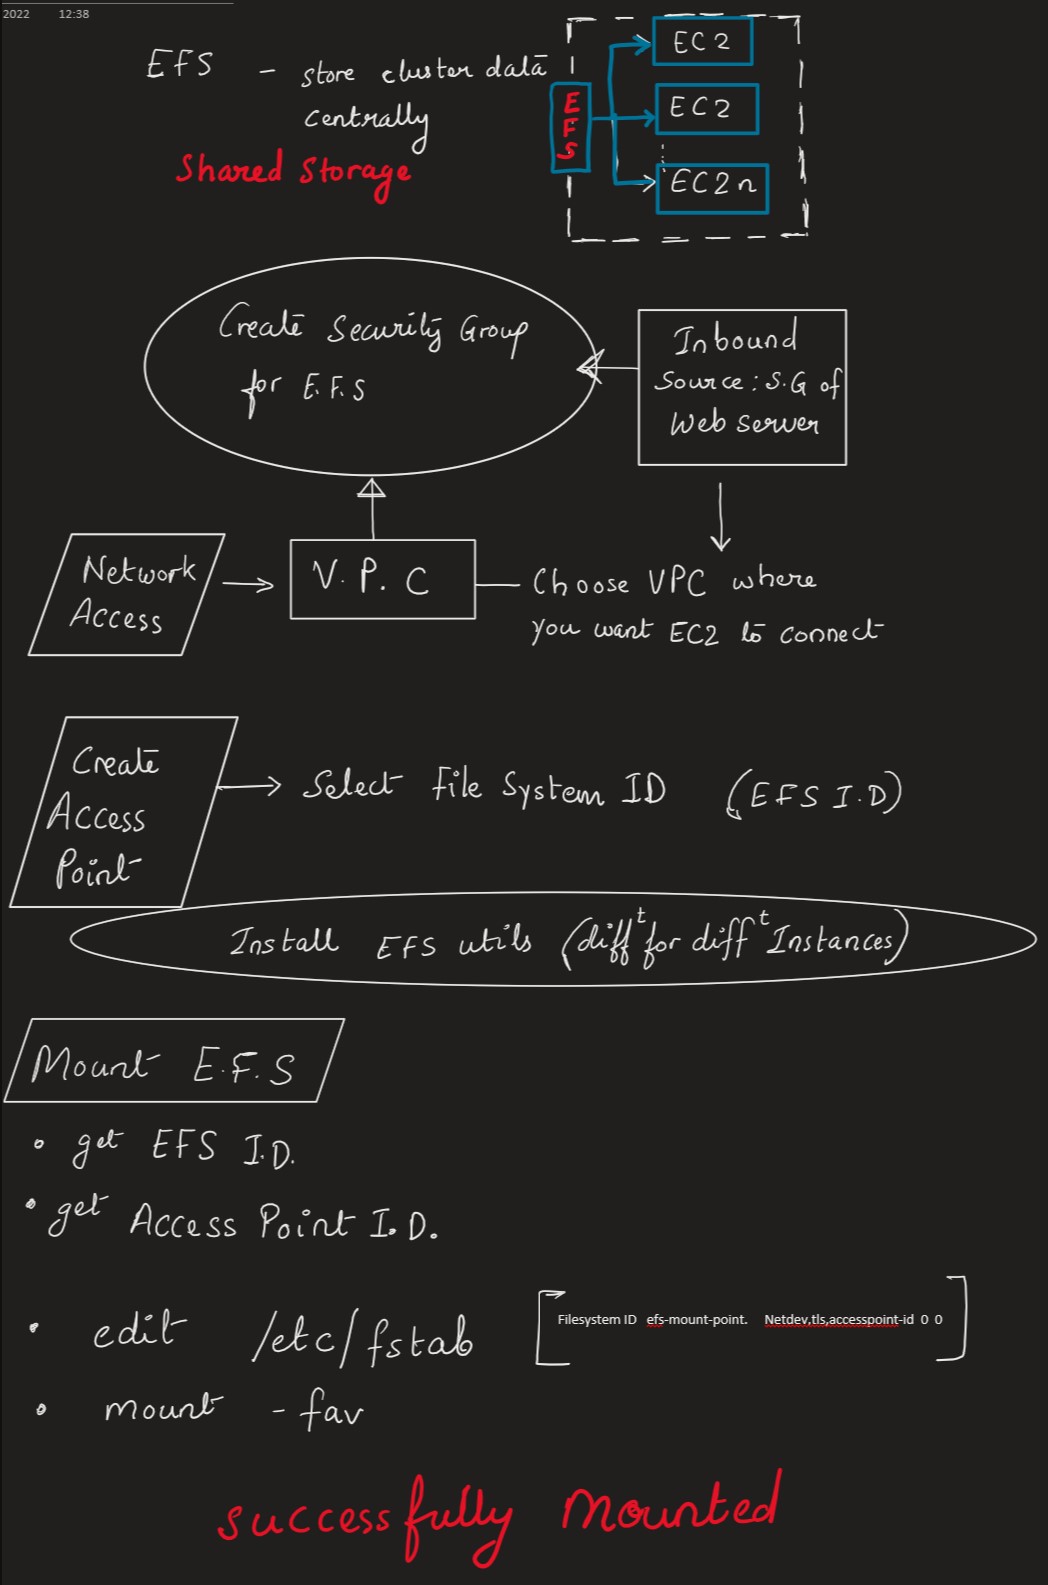 2022 12:38
EFS - store cluster data
centrally
Shared Storage
EFS
EC2
EC2
EC2n
Create Security Group
for E.F.S
Inbound
Source: S.G of
Web server
Network
Access
V.P.C
Choose VPC where
you want EC2 to connect
Create
Access
Point
Select File System ID (EFS I.D)
Install EFS utils (diffᵗ for diffᵗ Instances)
Mount E.F.S
• get EFS I.D.
• get Access Point I.D.
• edit /etc/fstab
[Filesystem ID efs-mount-point. Netdev,tls,accesspoint-id 0 0]
• mount -fav
successfully Mounted